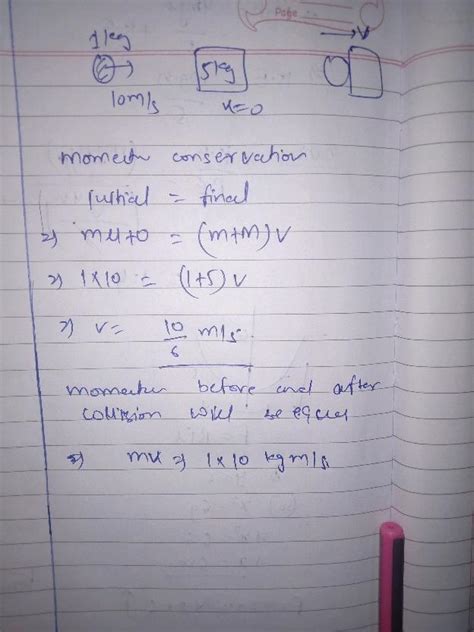 Page
1 kg
→ V
5 kg
10 m/s
u=0
momentum conservation
Initial = final
⇒ mu+0 = (m+M)V
⇒ 1×10 = (1+5)V
⇒ V= 10/6 m/s.
momentum before and after
collision will be equal
⇒ mu ⇒ 1×10 kg m/s